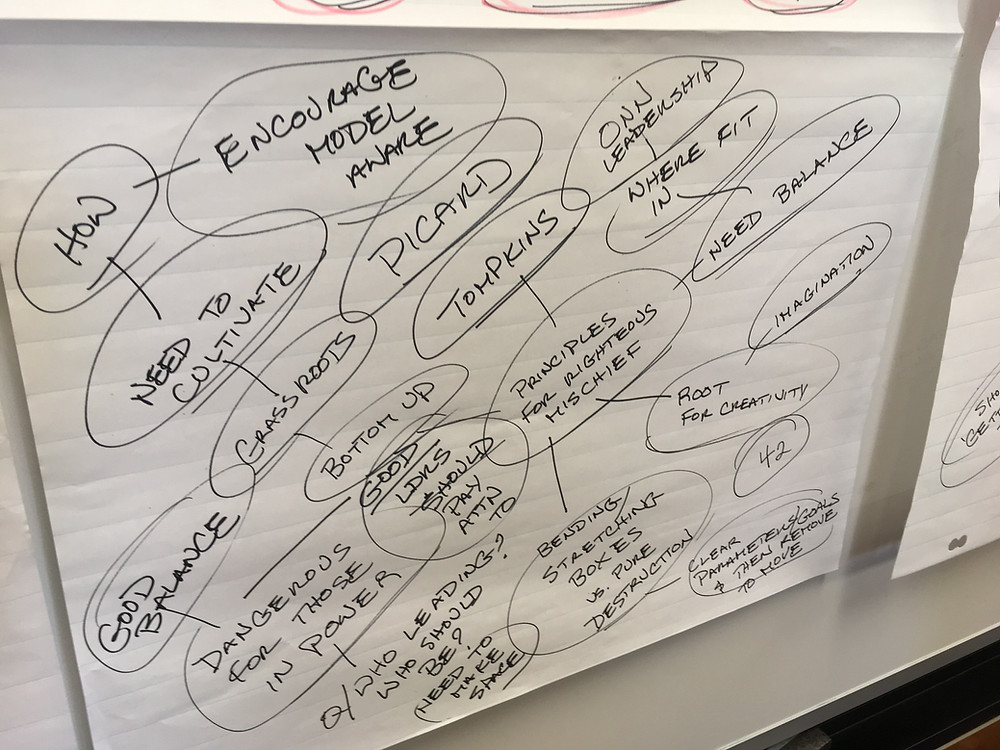 HOW
ENCOURAGE
MODEL
AWARE
NEED TO
CULTIVATE
PICARD
TOMPKINS
OWN
LEADERSHIP
WHERE FIT
IN
NEED BALANCE
IMAGINATION
GRASSROOTS
BOTTOM UP
PRINCIPLES
FOR RIGHTEOUS
MISCHIEF
ROOT
FOR CREATIVITY
42
GOOD
LDRS
SHOULD
PAY
ATTN
TO
GOOD
BALANCE
DANGEROUS
FOR THOSE
IN POWER
O/ WHO LEADING?
WHO SHOULD
BE?
NEED TO
MAKE
SPACE
BENDING
STRETCHING
BOXES
VS. PURE
DESTRUCTION
CLEAR
PARAMETERS/GOALS
& THEN REMOVE
TO MOVE